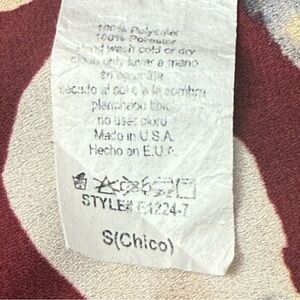 100% Polyester
100% Poliester
Hand wash cold or dry
clean only lavar a mano
en agua fria
secado al sol o a la sombra
planchado tibio
no usar cloro
Made in U.S.A.
Hecho en E.U.A.
STYLE# G1224-7
S(Chico)